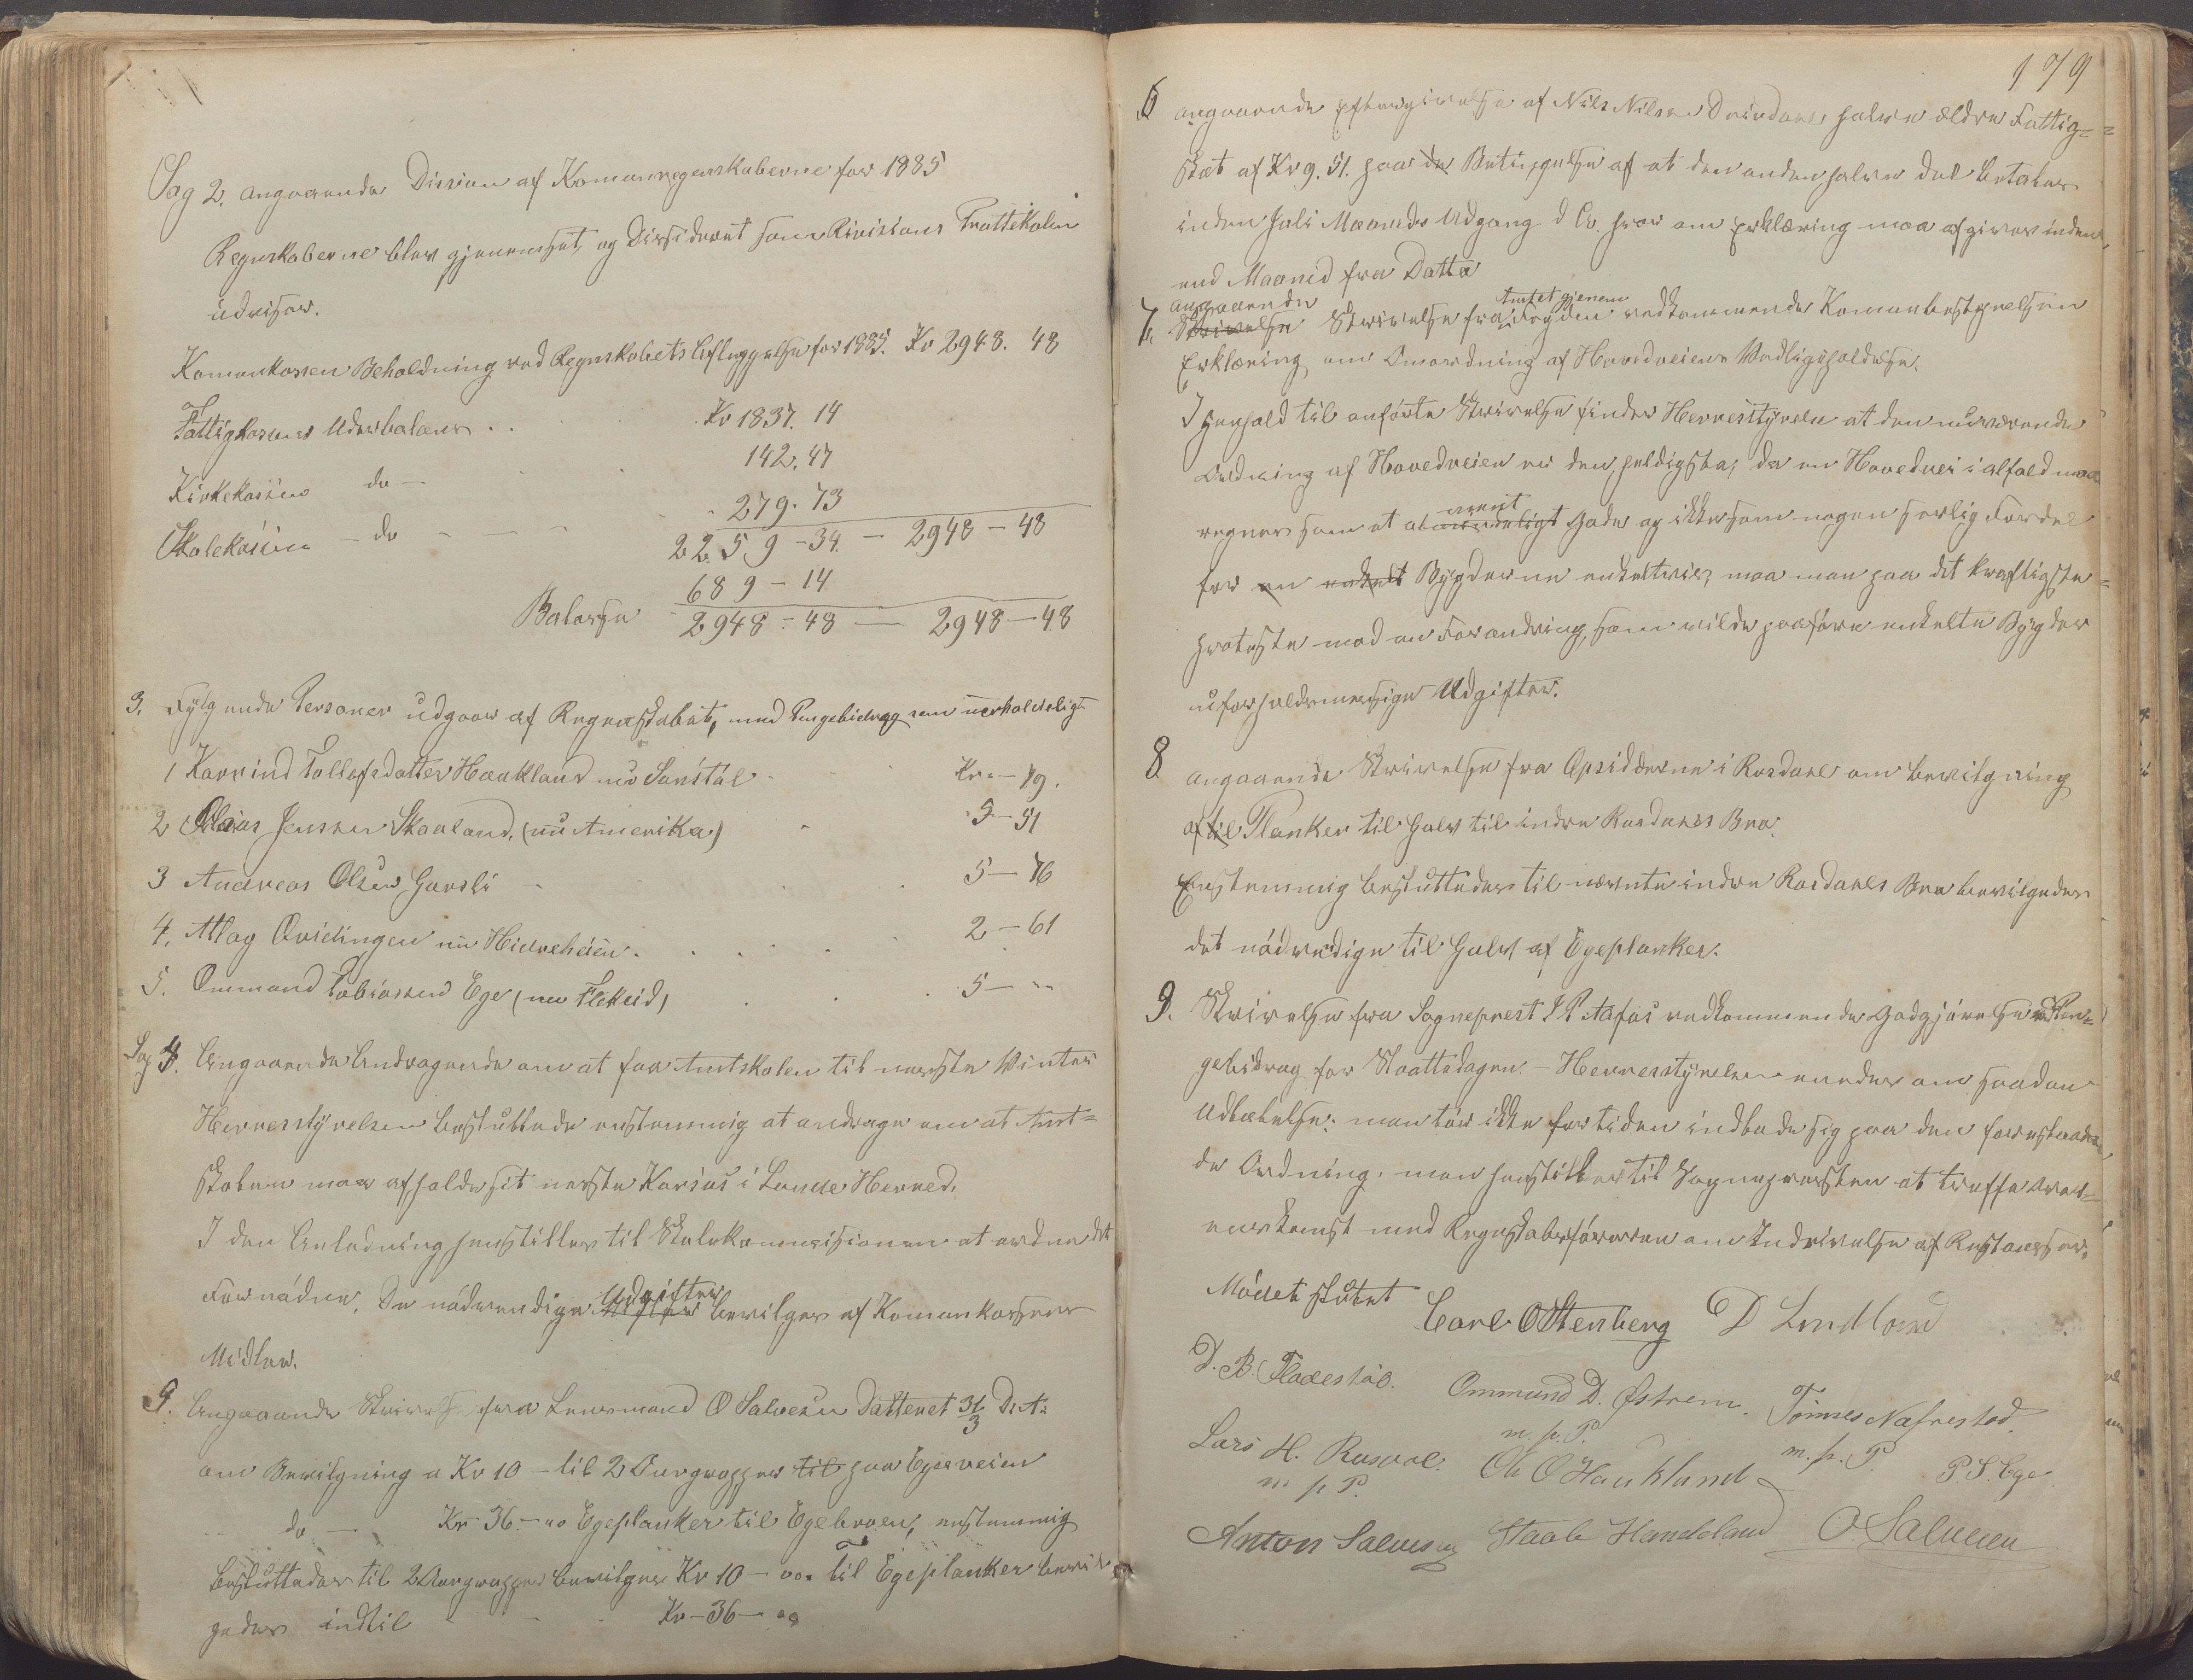 Sag 2. angaaende Dission af Komunregnskaberne for 1885
Regnskaberne blev gjenemset, og Dissideret som Rivisions Prottekolen
udviser.
Komunkassen Beholdning ved Regnskabets Aflæggelse for 1885. Kr 2948. 48
Fattigkassens Underbalanse . . Kr 1837. 14
Kirkekassen do — 142. 47
Skolekassen — do - — 279. 73
2259 - 34. — 2948 — 48
Balanse 689 — 14
2948 - 48 — 2948 — 48
3. Følgende Personer udgaar af Regnskabet, med Pengebidrag som uerholdeligt
1 Karrind Tollefsdatter Haukland nu Sanstøl Kr " — 79.
2 Elias Jensen Skaaland. (nu Amerika) 3 — 51
3 Andreas Olsen Gursli 5 — 76
4. Atlag Qvidingen nu Hidreheien . 2 — 61
5. Ommund Tobiassen Ege (nu Flekeid) 5 — "
Sag 4. Angaaende Andragende om at faa Amtskolen til næste Vinter
Herresstyrelsen besluttede enstemmig at andrage om at Amt=
skolen maa afholde sit neste Kursus i Lunde Herred.
I den Anledning henstilles til Skolekommisionen at ordne det
Fornødne. De nødvendige Udgifter bevilges af Komunkassens
Midler.
5. Angaaende Skrivelse fra Lensmand O Salvesen Datteret 31/3 D. A:
om Bevilgning a Kr 10 — til 2 til paa Egesveien
do — Kr 36. — oo Egeplanker til Egebroen, enstemmig
besluttedes til 2 bevilges Kr 10 — oo. til Egeplanker bevil
gedes indtil Kr — 36 — oo
179
6 angaaende Eftergivelse af Nils Nilsen Dreidals halve eldre Fattig=
skat af Kr 9. 51. paa de Betingelse af at den anden halve del betales
inden Juli Maaneds Udgang d Aa. hvor om Erklæring maa afgives inden
end Maaned fra Datto
angaaende
7. Skrivelse Skrivelse fra Amtet gjenem Fogden vedkommende Komunbestyrelsen
Erklæring om Omordning af Hovedveiens Vedligeholdelse.
I Henhold til anførte Skrivelse finder Herresstyrelse at den nuværende
Ordning af Hovedveien er den heldigste, da en Hovedvei i alfald maa
regnes som et almeent Gode og ikke som nogen særlig Fordel
for en enkelt Bygderne enkeltvis, maa man paa det kraftigste
proteste mod en Forandring, som vilde paaføre enkelte Bygder
uforholdsmessige Udgifter.
8. angaaende Skrivelse fra Opsidderne i Rusdal om bevilgning
af til Planker til Gulv til indre Rusdals Bro.
Enstemmig besluttedes til nævnte indre Rusdals Bro bevilgedes
det nødvedige til Gulv af Egeplanker.
9. Skrivelse fra Sogneprest I P Aafus vedkommende Godgjørelse Pen=
gebidrag for Skattedagen. — Herresstyrelsen enedes om saadan
Udtalelse: man tør ikke for tiden indlade sig paa den forestaaen
de Ordning. man henstiller til Sognepresten at treffe over=
enskomst med Regnskabsføreren om Inddrivelse af Restancer.
Mødet slutet
Carl OStenberg D Lindland
D. B. Fladestøl. Ommund D. Østrem. Tønnes Nafrestad.
m. p. P. m. p. P.
Lars H. Rusdal. Ole O Haukland P. S. Ege
m p P.
Anton Salvesen Staale Handeland O. Salvesen